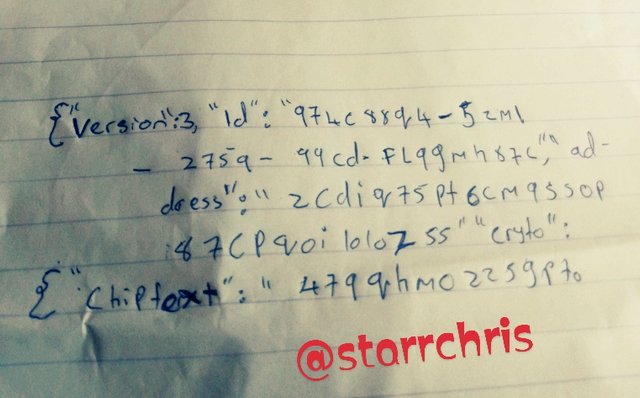 {"Version":3, "Id": "974c88q4-52M1
- 275q- 99cd- FL99Mh87C,"" ad-
dress": " 2Cdiq75Pt6CM9SSOP
i87CPqoi10107SS" "cryto":
{"Chiptext": " 479qhMO22S9Pto
@starrchris